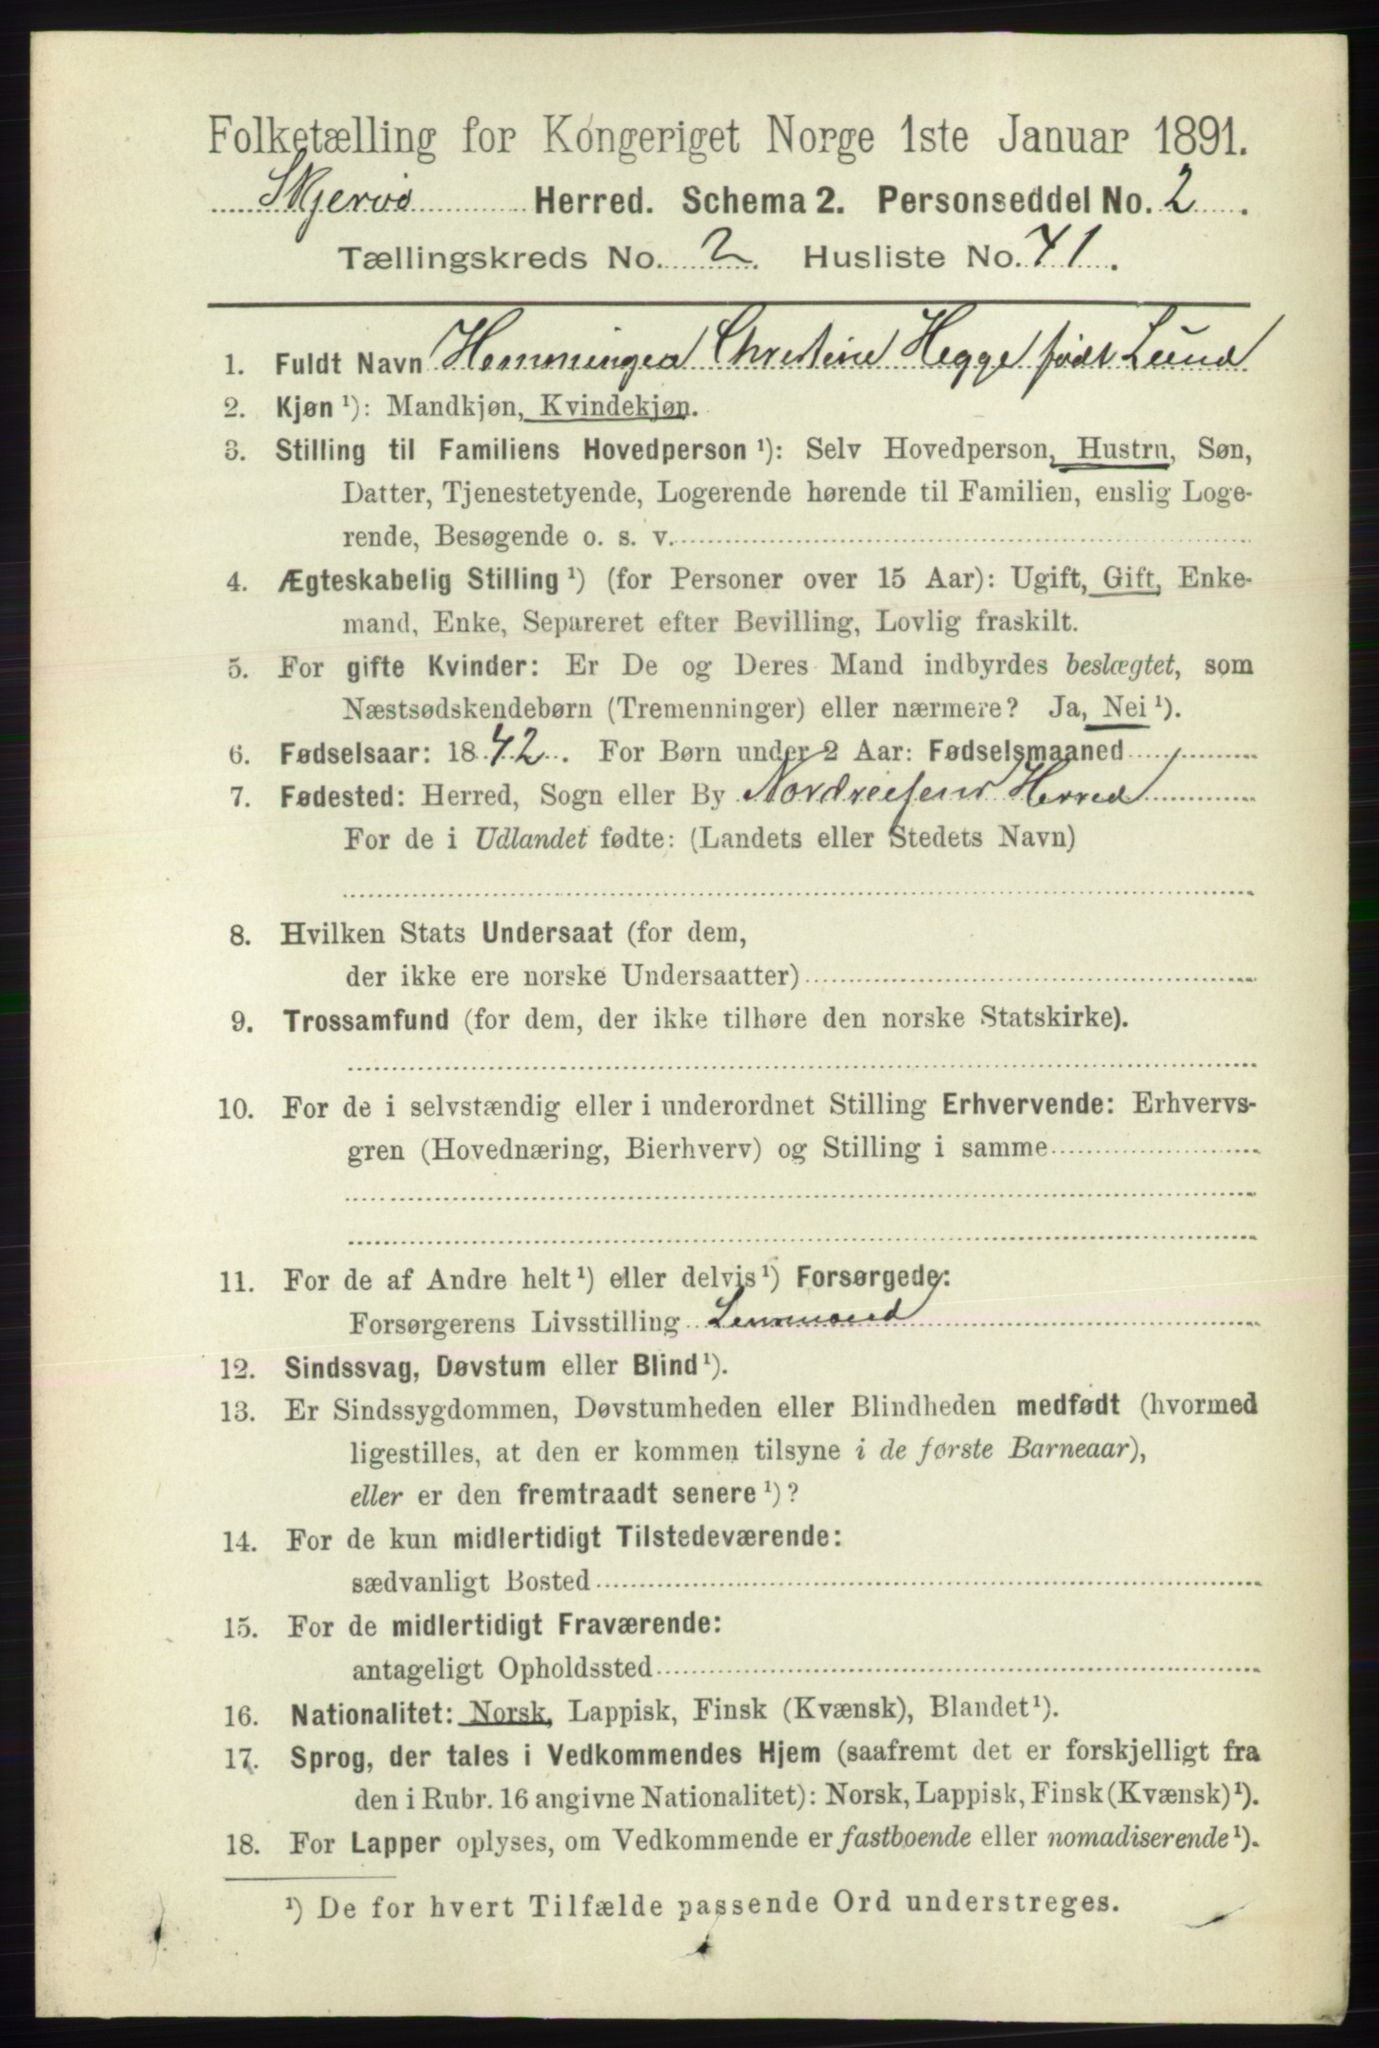 Folketælling for Kongeriget Norge 1ste Januar 1891.
Skjervø Herred. Schema 2. Personseddel No. 2.
Tællingskreds No. 2. Husliste No. 41.
1. Fuldt Navn Hemmingea Christine Hegge født Lund
2. Kjøn ¹): Mandkjøn, Kvindekjøn.
3. Stilling til Familiens Hovedperson ¹): Selv Hovedperson, Hustru, Søn,
Datter, Tjenestetyende, Logerende hørende til Familien, enslig Loge-
rende, Besøgende o. s. v.
4. Ægteskabelig Stilling ¹) (for Personer over 15 Aar): Ugift, Gift, Enke-
mand, Enke, Separeret efter Bevilling, Lovlig fraskilt.
5. For gifte Kvinder: Er De og Deres Mand indbyrdes beslægtet, som
Næstsødskendebørn (Tremenninger) eller nærmere? Ja, Nei ¹).
6. Fødselsaar: 1842. For Børn under 2 Aar: Fødselsmaaned
7. Fødested: Herred, Sogn eller By Nordreisens Herred
For de i Udlandet fødte: (Landets eller Stedets Navn)
8. Hvilken Stats Undersaat (for dem,
der ikke ere norske Undersaatter)
9. Trossamfund (for dem, der ikke tilhøre den norske Statskirke).
10. For de i selvstændig eller i underordnet Stilling Erhvervende: Erhvervs-
gren (Hovednæring, Bierhverv) og Stilling i samme
11. For de af Andre helt ¹) eller delvis ¹) Forsørgede:
Forsørgerens Livsstilling Lensmand
12. Sindssvag, Døvstum eller Blind ¹).
13. Er Sindssygdommen, Døvstumheden eller Blindheden medfødt (hvormed
ligestilles, at den er kommen tilsyne i de første Barneaar),
eller er den fremtraadt senere ¹)?
14. For de kun midlertidigt Tilstedeværende:
sædvanligt Bosted
15. For de midlertidigt Fraværende:
antageligt Opholdssted
16. Nationalitet: Norsk, Lappisk, Finsk (Kvænsk), Blandet ¹).
17. Sprog, der tales i Vedkommendes Hjem (saafremt det er forskjelligt fra
den i Rubr. 16 angivne Nationalitet): Norsk, Lappisk, Finsk (Kvænsk) ¹).
18. For Lapper oplyses, om Vedkommende er fastboende eller nomadiserende ¹).
¹) De for hvert Tilfælde passende Ord understreges.